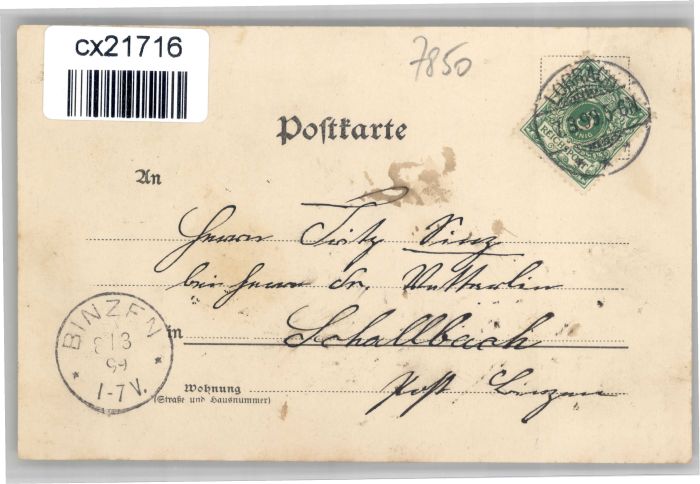 cx21716
7850
Postkarte
An
Herrn Fritz Sinz
bei Herrn Fr. Vetterlin
in Schallbach
Wohnung
(Straße und Hausnummer)
Post Binzen
BINZEN
1-7 V.
LÖRRACH
REICHSPOST